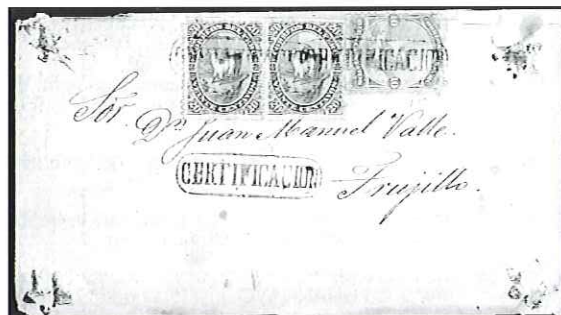 CERTIFICACION
Sor. Dn Juan Manuel Valle.
CERTIFICACION
Trujillo.